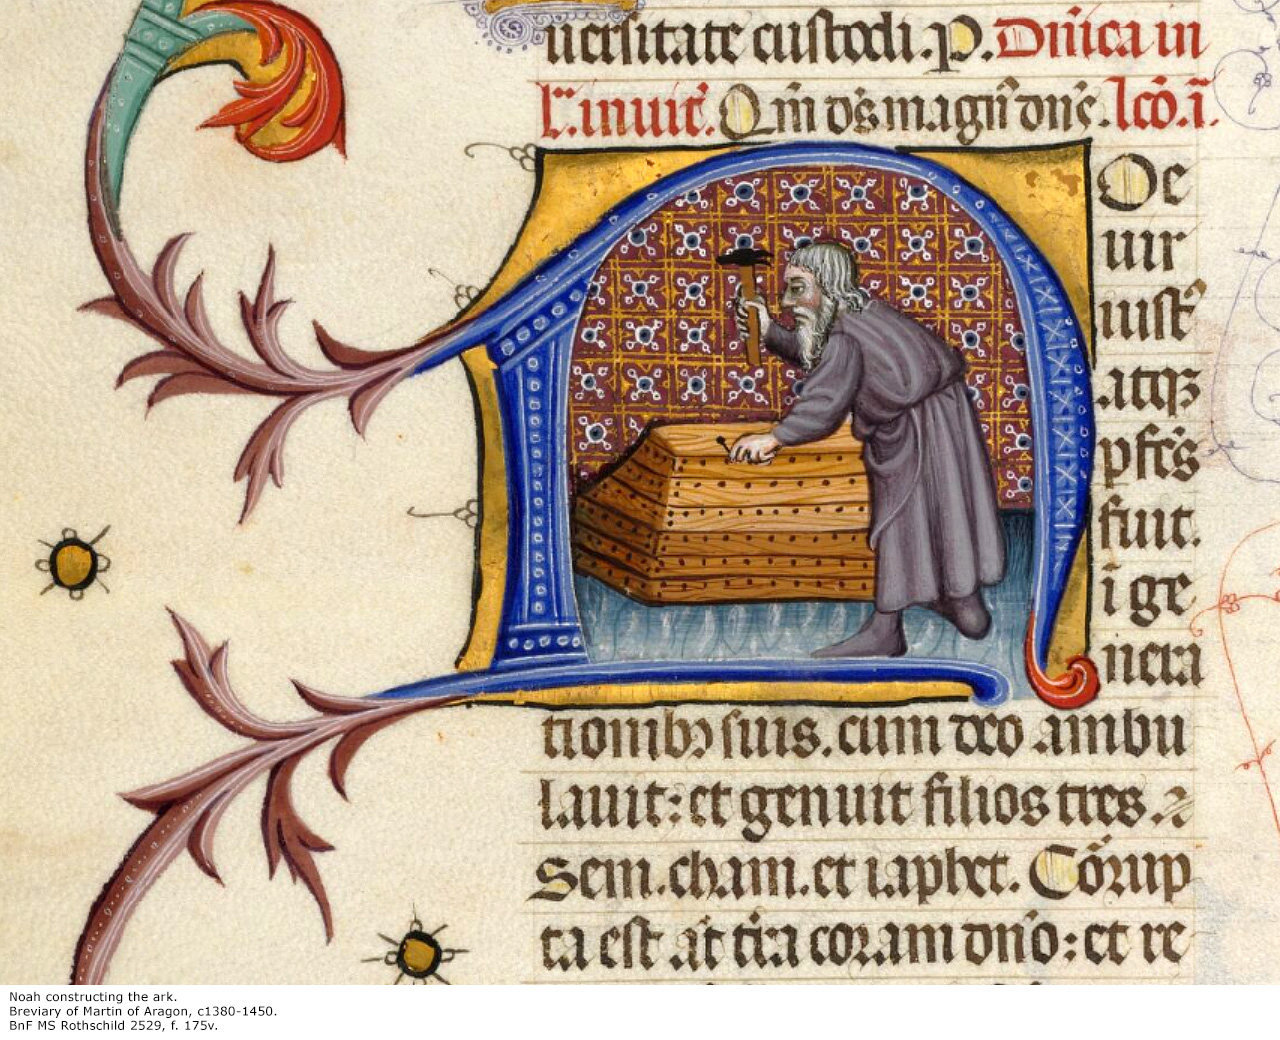 uersitate custodi. p. Dn̄ica in
lx. inuit̄. Qm̄ ds̄ magn̄ dn̄s. lc̄o. ī.
NOe
uir
iust᷒
atqꝫ
ꝑfc̄s
fuit.
ī ge
nera
tionibꝫ suis. cum deo ambu
lauit: et genuit filios tres.
Sem. cham. et iaphet. Cōrup
ta est aūt t̄ra coram dn̄o: et re
Noah constructing the ark.
Breviary of Martin of Aragon, c1380-1450.
BnF MS Rothschild 2529, f. 175v.